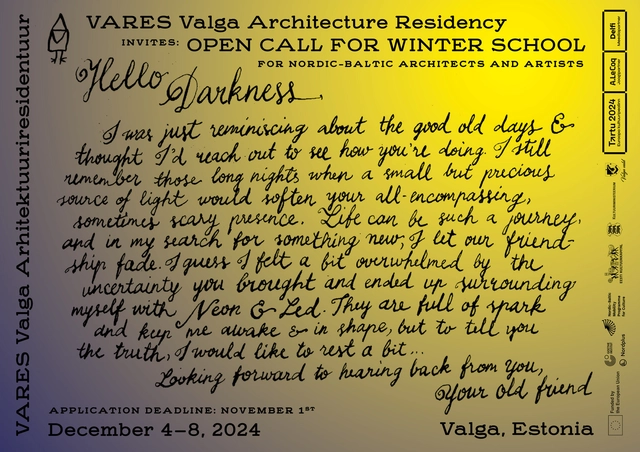 VARES Valga Architecture Residency
INVITES: OPEN CALL FOR WINTER SCHOOL
FOR NORDIC-BALTIC ARCHITECTS AND ARTISTS
Hello Darkness
I was just reminiscing about the good old days &
thought I'd reach out to see how you're doing. I still
remember those long nights when a small but precious
source of light would soften your all-encompassing,
sometimes scary presence. Life can be such a journey,
and in my search for something new, I let our friend-
ship fade. I guess I felt a bit overwhelmed by the
uncertainty you brought and ended up surrounding
myself with Neon & Led. They are full of spark
and keep me awake & in shape, but to tell you
the truth, I would like to rest a bit...
Looking forward to hearing back from you,
Your old friend
APPLICATION DEADLINE: NOVEMBER 1ST
December 4–8, 2024
Valga, Estonia
VARES Valga Arhitektuuriresidentuur
Delfi
A.LeCoq
Tartu 2024
Nordplus
Funded by
the European Union